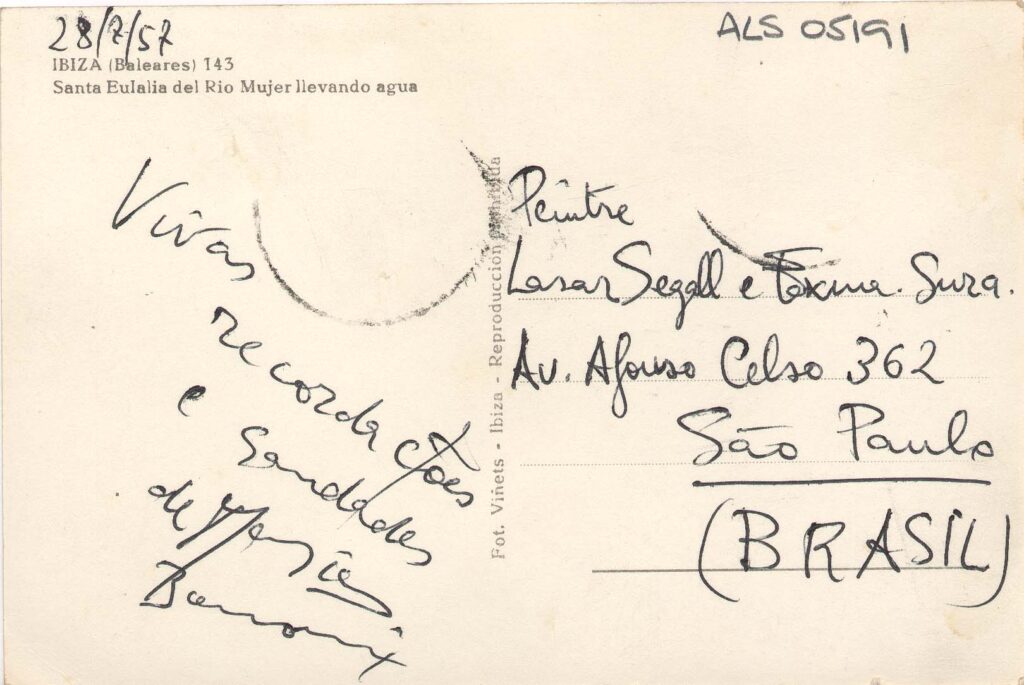 28/7/57
IBIZA (Baleares) 143
Santa Eulalia del Rio Mujer llevando agua
ALS 05191
Vivas
recordações
e Saudades
de Maria
Bonomi
Fot. Viñets - Ibiza - Reproduccion prohibida
Peintre
Lasar Segall e Exma. Sura.
Av. Afonso Celso 362
São Paulo
(BRASIL)